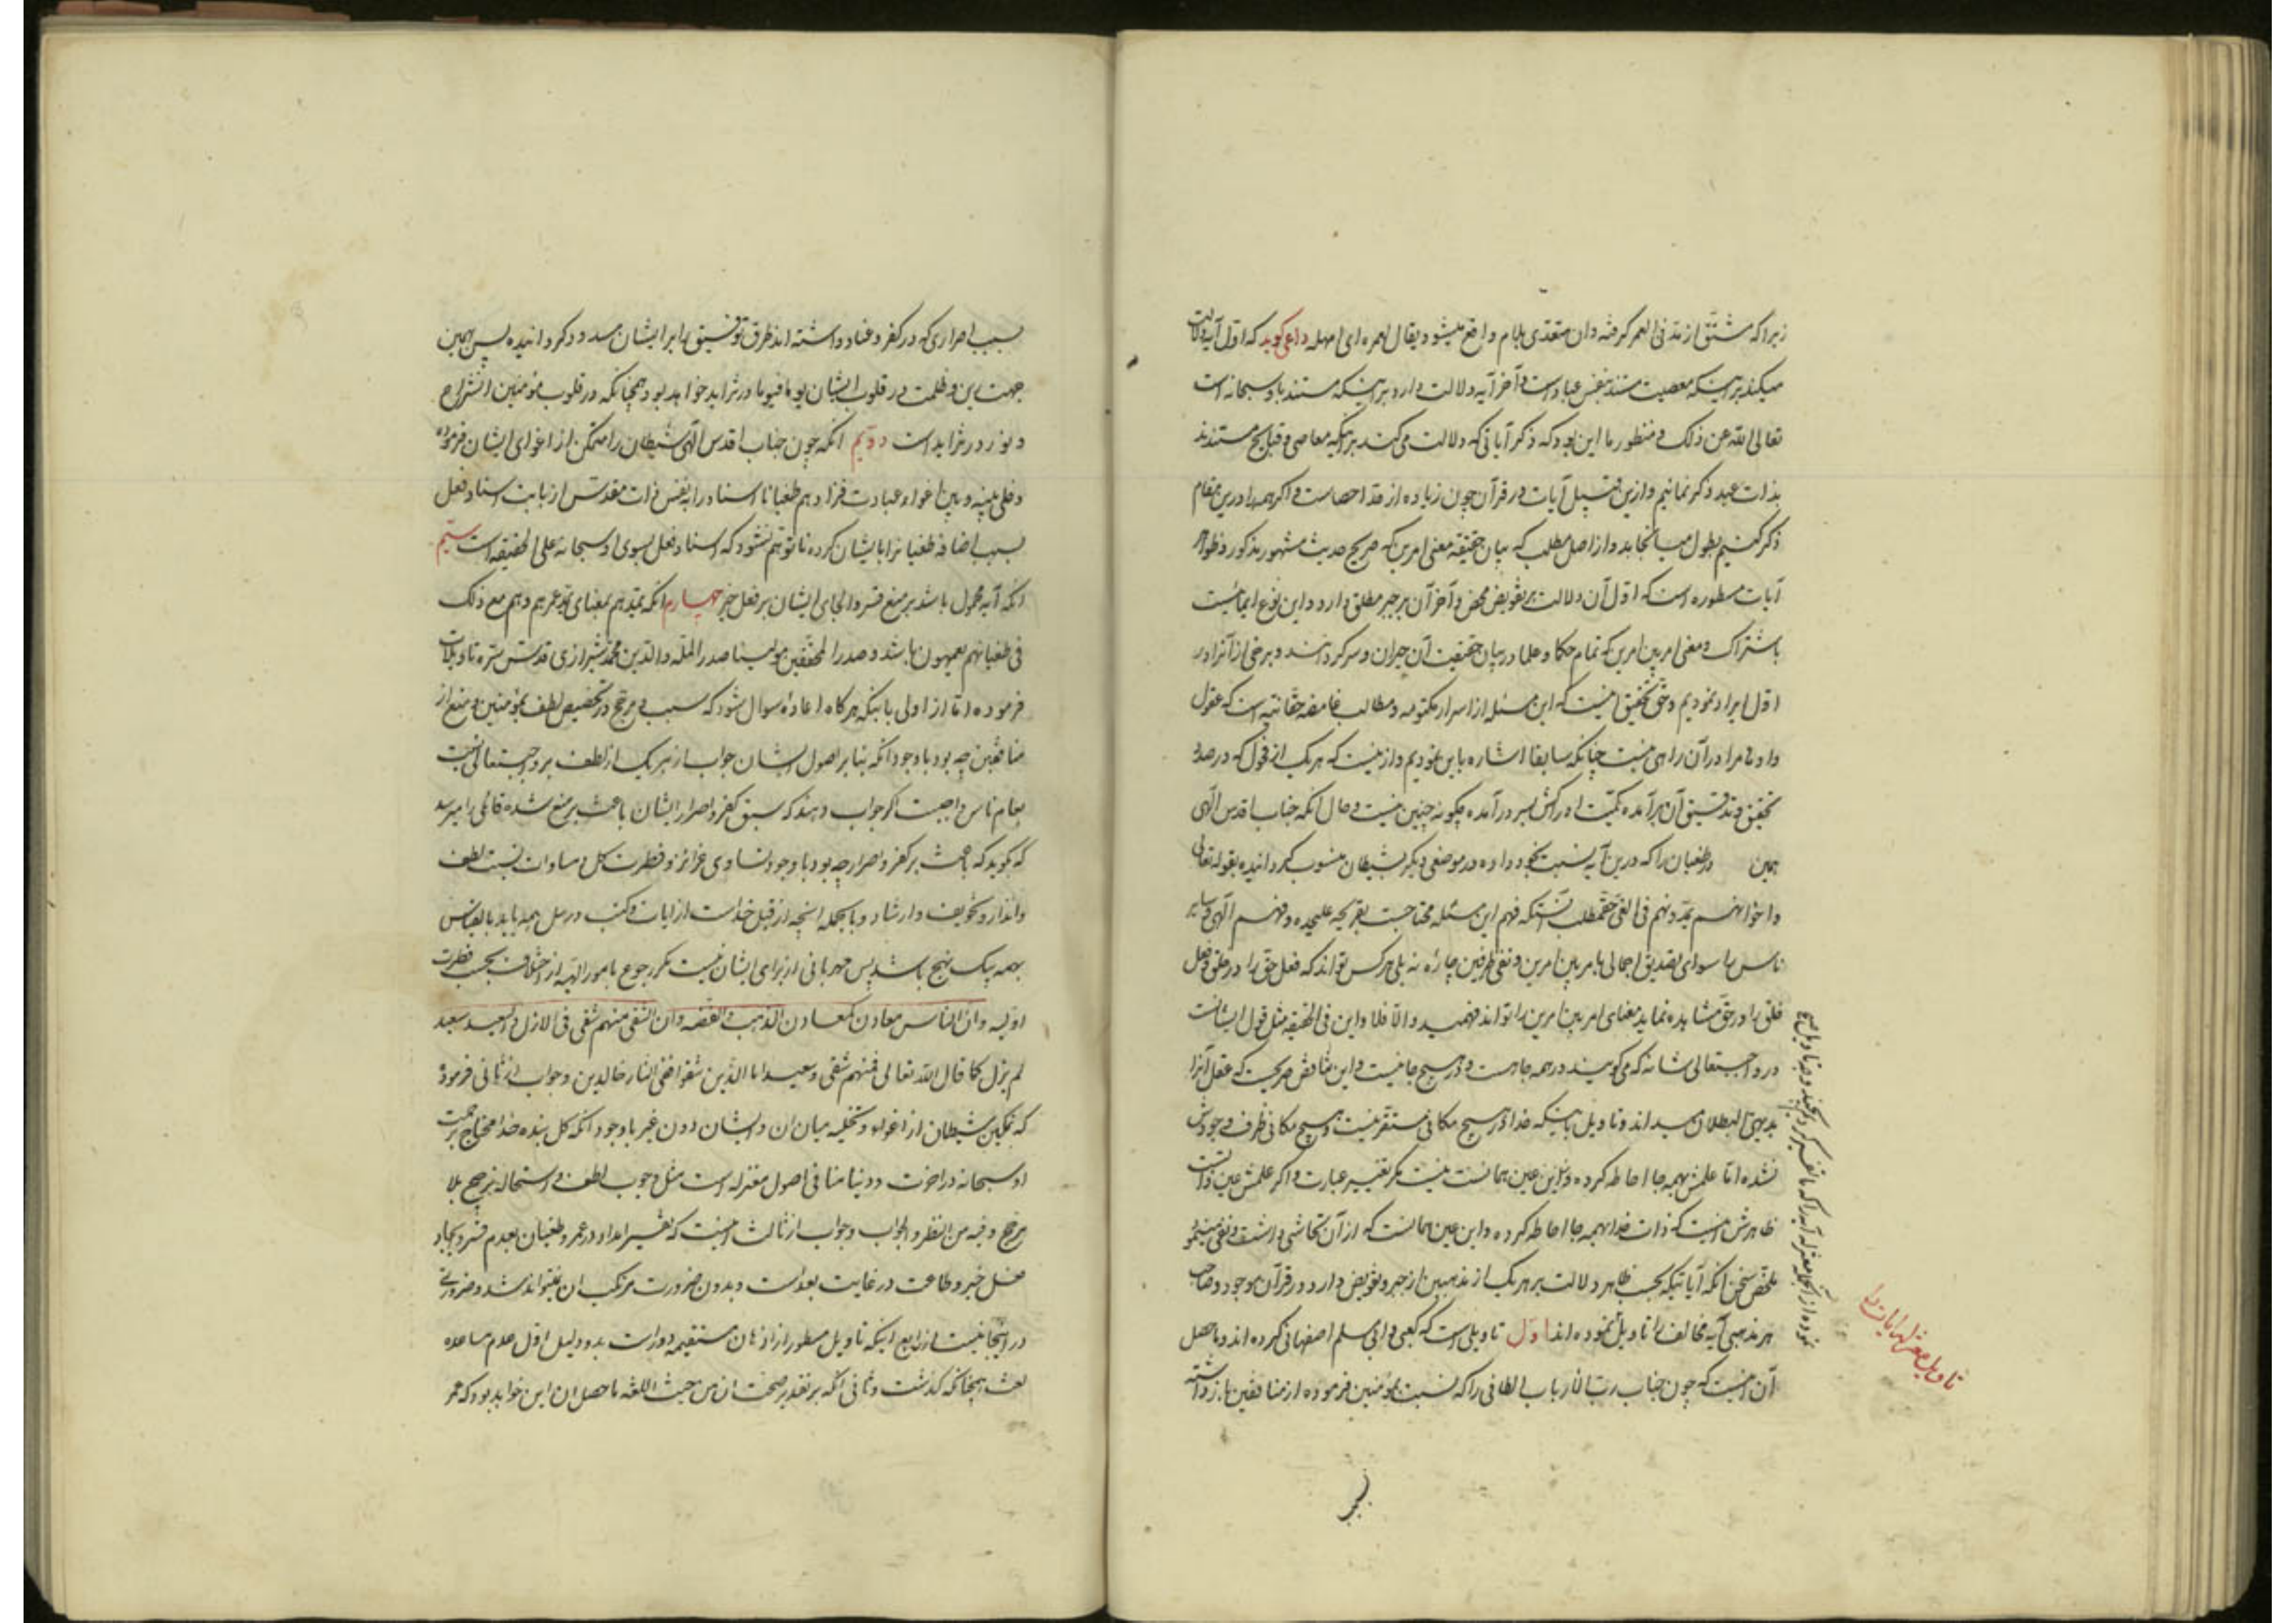 زیراکه مشتق از مد فی العمر گرفته وان متعدی بلام واقع میشود یقال لعمره ای امهله داعی کوید که اول آیه دلالت
میکند بر اینکه معصیت مستند بنفس عباد است و آخر آیه دلالت دارد بر اینکه مستند باو سبحانه است
تعالی الله عن ذلک و منظور ما این بود که ذکر آیاتی که دلالت می کند بر اینکه معاصی و قبایح مستندند
بذات عبد ذکر نمائیم وازین قبیل آیات در قرآن چون زیاده از حد احصاست و اکر همه را درین مقام
ذکر کنیم بطول میانجامد واز اصل مطلب که بیان حقیقه معنی امرین که صریح حدیث مشهور مذکور وظواهر
آیات مسطوره است که اول آن دلالت بر تفویض محض و آخر آن بر جبر مطلق دارد و این نوع ایمائیست
باشتراک و معنی امر بین امرین که تمام حکما و علما در بیان حقیقت آن حیران و سرکردانند و برخی از آنرا در
اول ایراد نمودیم وحق تحقیق اینست که این مسئله از اسرار مکتومه و مطالب غامضه حقانیه است که عقول
را در آن راهی نیست چنانکه سابقا اشاره باین نمودیم و ازینست که هر یک از فحول که در صدد
تحقیق و تدقیق آن برآمده ادراکش بسر درآمده چکونه چنین نیست و حال آنکه جناب اقدس الهی
همین در طغیان را که درین آیه نسبت بخود داده در موضعی دیکر بشیطان منسوب کردانیده بقوله تعالی
واخوانهم یمدونهم فی الغی حق مطلب آنستکه فهم این مسئله محتاجست بقریحه علیحده و فهم الهی و سایر
ناس را سوای تصدیق اجمالی بامر بین امرین و نفی طرفین چاره نه بلی هر کس تواند که فعل حق را در خلق و فعل
خلق را در حق مشاهده نماید معنای امر بین امرین را تواند فهمید والا فلا واین فی الحقیقه مثل قول ایشانست
در واجبتعالی شانه که می کویند در همه جا هست و در هیچ جا نیست و این تناقض صریحست که عقل آنرا
بدیهی البطلان میداند وتاویل باینکه خدا در هیچ مکانی مستقر نیست و هیچ مکانی ظرف وجودش
نشده اما علمش بهمه جا احاطه کرده و این عین همانست نیست مکر تغییر عبارت و اکر علمش عین ذاتست
ظاهرش اینست که ذات خدا بهمه جا احاطه کرده و این عین همانست که از آن تحاشی داشت و نفی مینمود
ملخص سخن آنکه آیاتیکه بحسب ظاهر دلالت بر هر یک از مذهبین از جبر و تفویض دارد در قرآن موجود و صاحب
هر مذهبی آیه مخالف را تاویل نموده اند اول تاویلی است که کعبی و ابی مسلم اصفهانی کرده اند و ماحصل
آن اینست که چون جناب رب الارباب الطافی را که نسبت بمؤمنین فرموده از منافقین باز داشته
تاویل معتزله آیات را
بسبب اصراری که در کفر و عناد داشته اند طرق توفیق را بر ایشان مسدود کردانیده پس بهمین
جهت رین و ظلمت در قلوب ایشان یوما فیوما در تزاید خواهد بود همچنانکه در قلوب مؤمنین انشراح
و نور در تزاید است دویم آنکه چون جناب اقدس الهی شیطان را متمکن از اغوای ایشان فرموده
و خلی بینه و بین اغواء عباده فزادهم طغیانا اسناد را بنفس ذات مقدس از بابت اسناد فعل
بسبب اضافه طغیانرا بایشان کرده تا توهم نشود که اسناد فعل بسوی او سبحانه علی الحقیقه است سیم
آنکه آیه محمول باشد بر منع قسر و الجای ایشان بر فعل خیر چهارم آنکه یمدهم بمعنای یمد عمرهم و هم مع ذلک
فی طغیانهم یعمهون باشد و صدر المحققین مولینا صدر الملة والدین محمد شیرازی قدس سره تاویلات
فرموده اما از اولی باینکه هر کاه اعاده سوال شود که سبب مرجح در تخصیص لطف بمؤمنین و منع از
منافقین چه بود باوجود آنکه بنابر اصول ایشان جواب از هر یک از لطف بر واجبتعالی نسبت
بعام ناس واجبست اکر جواب دهند که سبق کفر و اصرار ایشان باعث بر منع شده قائلی را میرسد
که بکوید که باعث بر کفر و اصرار چه بود باوجود تساوی غرائز و فطرت کل و مساوات نسبت لطف
وانذار و تخویف و ارشاد و بالجمله آنچه از قبل خداست از ایات و کتب و رسل همه باید بالقیاس
بهمه بیک نهج باشد پس مهربانی از برای ایشان نیست مکر رجوع بامور الهیه از اختلاف بحسب فطرت
اولیه وان الناس معادن کمعادن الذهب والفضه وان الشقی منهم شقی فی الازل والسعید سعید
لم یزل کما قال الله تعالی فمنهم شقی وسعید اما الذین شقوا ففی النار خالدین و جواب از ثانی فرموده
که تمکین شیطان از اغواء و تخلیه میان ان و ایشان دون غیر باوجود آنکه کل بنده خدا محتاج برحمت
او سبحانه در آخرت و دنیا منافی اصول معتزله است مثل وجوب لطف و استحاله ترجیح بلا
مرجح وفیه من النظر والجواب و جواب از ثالث اینست که تفسیر امداد در عمر و طغیان بعدم قسر و ایجاد
فعل خیر و طاعت در غایت بعد است و بدون ضرورت مرتکب ان نمیتواند شد و ضرورتی
در اینجا نیست از رابع اینکه تاویل مسطور از اذهان مستقیمه دور است بدو دلیل اول عدم مساعده
لغت همچنانکه کذشت و ثانی آنکه بر تقدیر صحت ان من حیث اللغه ماحصل ان این خواهد بود که عمر